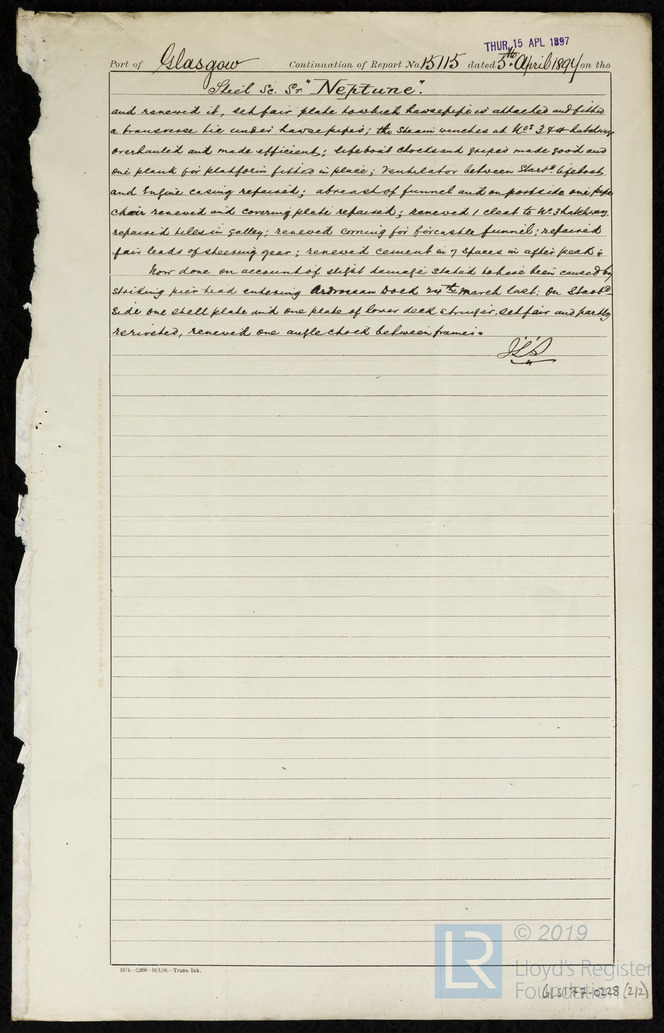 THUR. 15 APL 1897
Port of Glasgow Continuation of Report No 15115 dated 5th April 1897 on the
Steel Sc. Sr. "Neptune".
and renewed it, set fair plate to which hawsepipe is attached and fitted
a transverse tie under hawsepipes; the steam winches at Nos 3 & 4 hatchways
overhauled and made efficient; lifeboat chocks and gripes made good and
one plank for platform fitted in place; ventilator between Starbd lifeboats
and Engine casing repaired; abreast of funnel and on port side one pipe
chair renewed and covering plate repaired; renewed 1 cleat to No. 3 hatchway
repaired tiles in galley; renewed coming for forcastle funnel; repaired
fair leads of steering gear; renewed cement in 7 spaces in after peak;
Now done on account of slight damage stated to have been caused by
striking pier head entering Ardrossan Dock 24th March last: On Starbd
side one shell plate and one plate of lower deck stringer, set fair and partly
reriveted, renewed one angle chock between frames.
1874.—2,000—10/1/96.—Trans. Ink.
LR © 2019
Lloyd's Register
Foundation
GLS177-0228 (2/2)